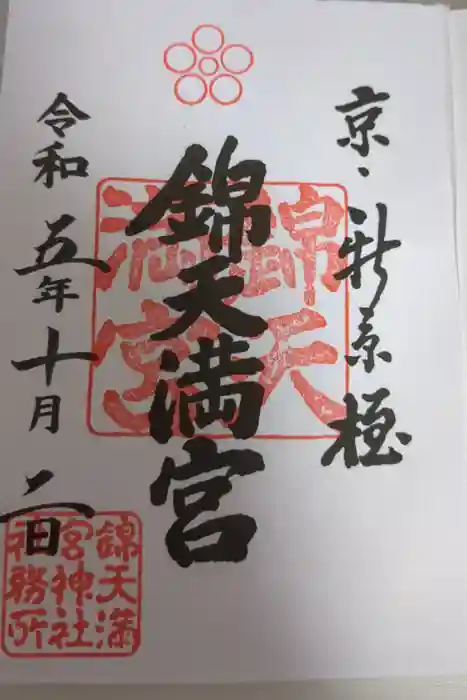 京・新京極
錦天満宮
錦天満宮
令和五年十月二日
錦天満
宮神社
神務所